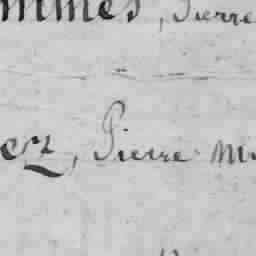 mmes, Pierre
ez, Pierre M